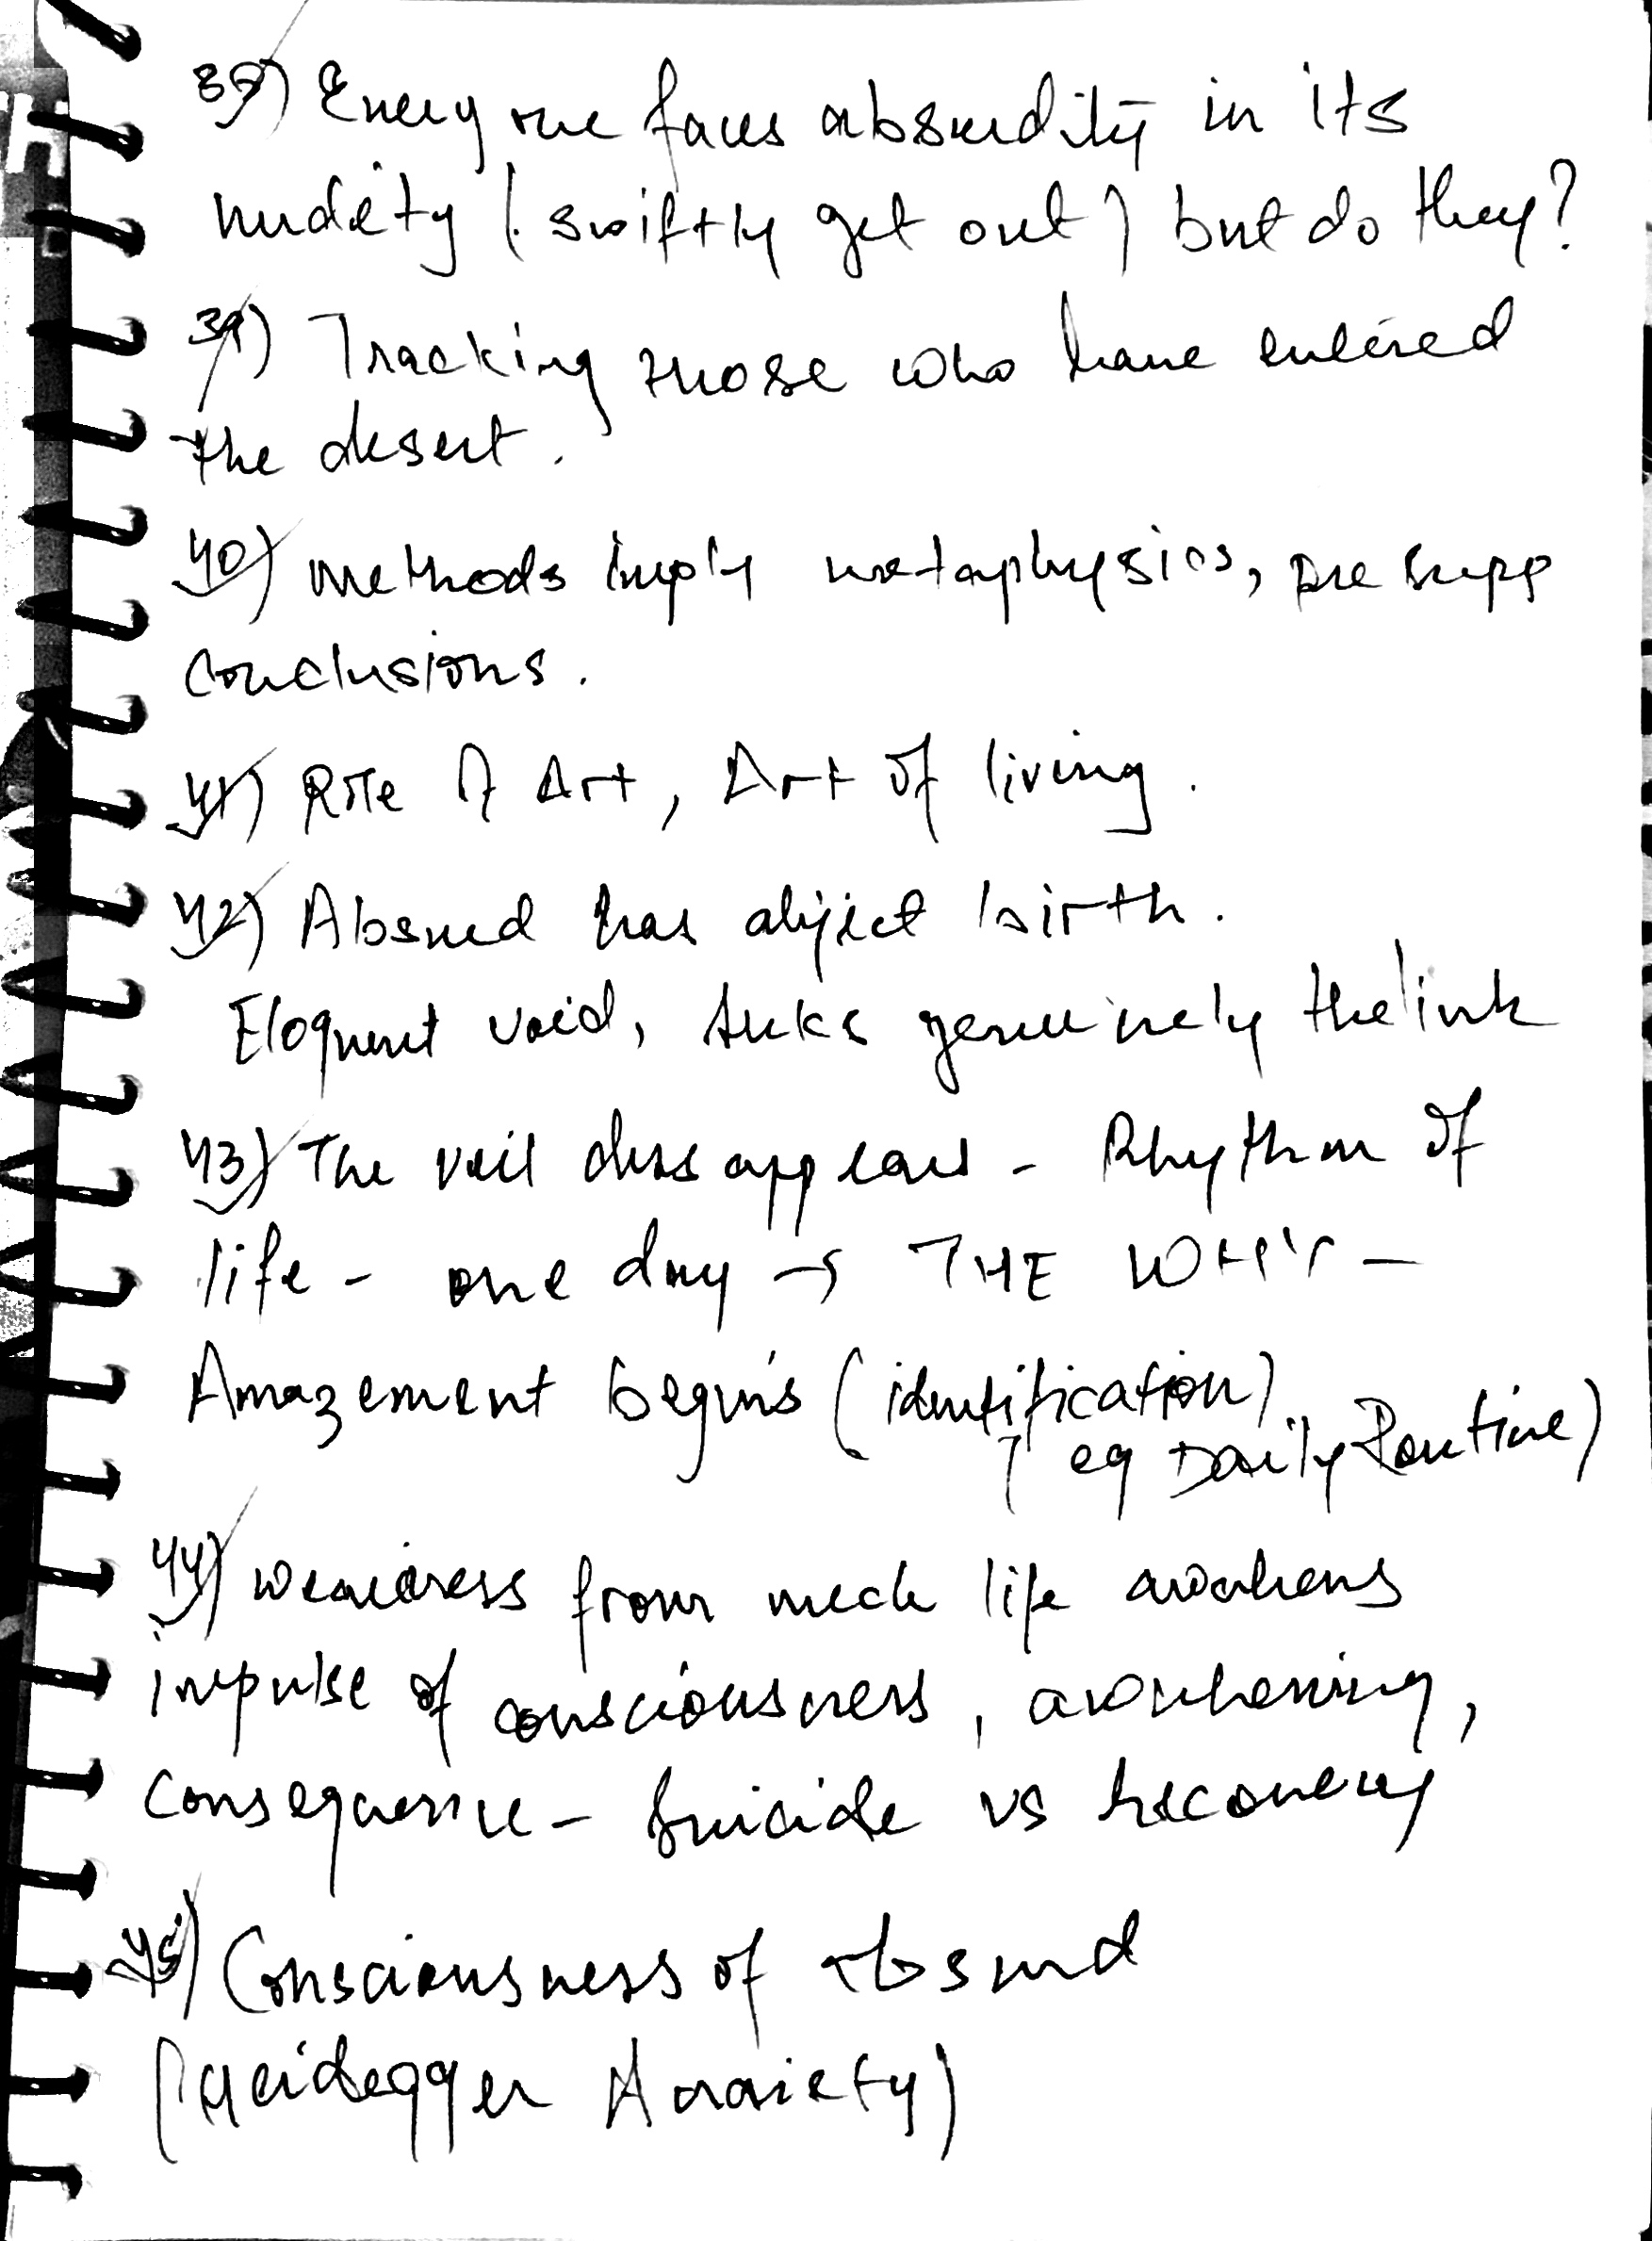 38) Every one faces absurdity in its
nudity (swiftly get out) but do they?
39) Tracking those who have entered
the desert.
40) Methods imply metaphysics, pre supp
conclusions.
41) Rite of Art, Art of living.
42) Absurd has abject birth.
Eloquent void, seeks genuinely the link
43) The veil dissappears - Rhythm of
life - one day → THE WHY -
Amazement begins (identification)
↑ eg Daily Routine)
44) Weariness from mech life awakens
impulse of consciousness, awakening,
consequence - Suicide vs recovery
45) Consciousness of Absurd
(Heidegger Anxiety)